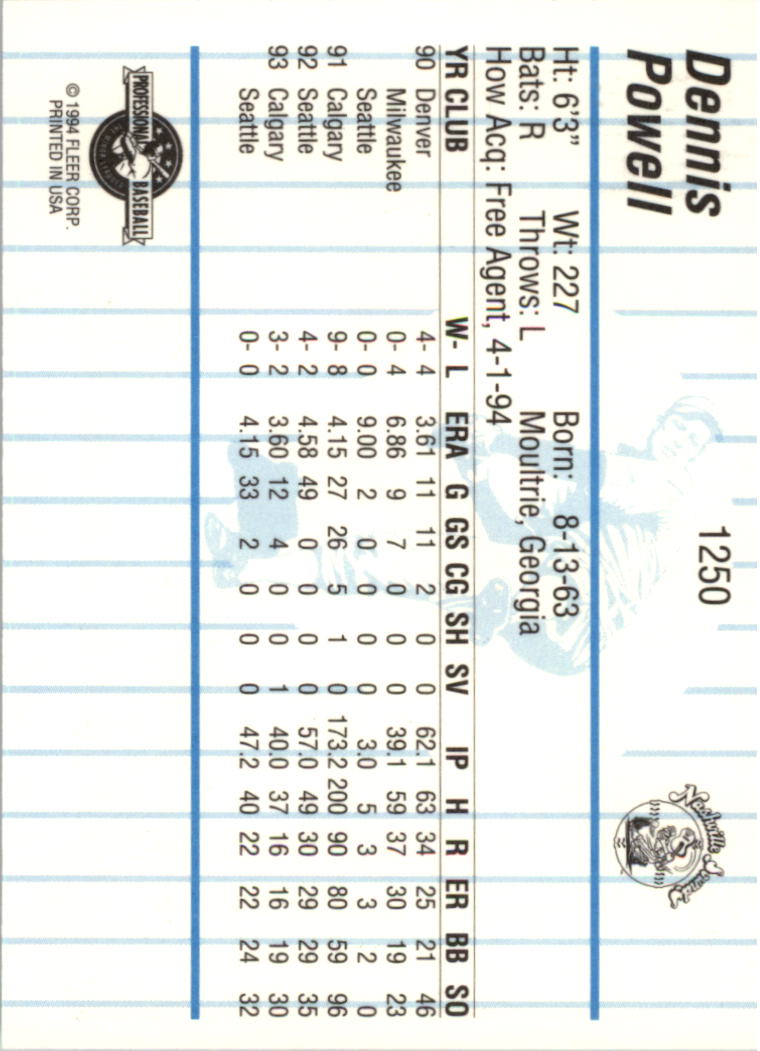 Dennis
Powell
1250
Nashville Sounds
Ht: 6'3" Wt: 227 Born: 8-13-63
Bats: R Throws: L Moultrie, Georgia
How Acq: Free Agent, 4-1-94
YR CLUB W- L ERA G GS CG SH SV IP H R ER BB SO
90 Denver 4- 4 3.61 11 11 2 0 0 62.1 63 34 25 21 46
Milwaukee 0- 4 6.86 9 7 0 0 0 39.1 59 37 30 19 23
Seattle 0- 0 9.00 2 0 0 0 0 3.0 5 3 3 2 0
91 Calgary 9- 8 4.15 27 26 5 1 0 173.2 200 90 80 59 96
92 Seattle 4- 2 4.58 49 0 0 0 0 57.0 49 30 29 29 35
93 Calgary 3- 2 3.60 12 4 0 0 1 40.0 37 16 16 19 30
Seattle 0- 0 4.15 33 2 0 0 0 47.2 40 22 22 24 32
PROFESSIONAL BASEBALL
© 1994 FLEER CORP.
PRINTED IN USA